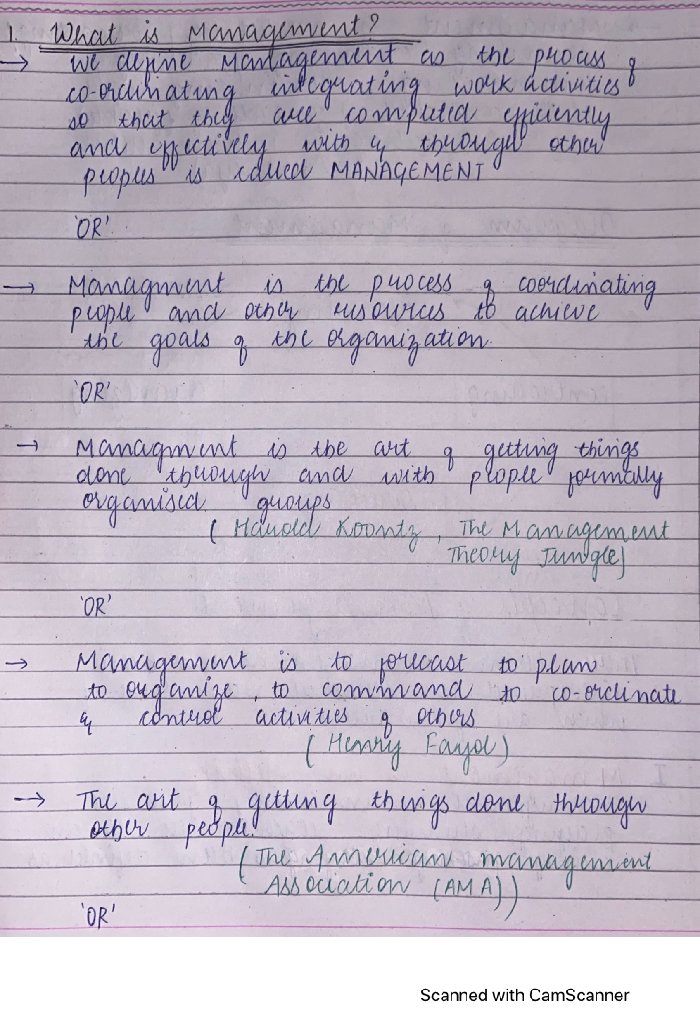 1. What is Management?
→ We define Management as the process of
co-ordinating integrating work activities
so that they are completed efficiently
and effectively with & through other
peoples is called MANAGEMENT
'OR'
→ Managment is the process of coordinating
people and other resources to achieve
the goals of the organization.
'OR'
→ Managment is the art of getting things
done through and with people formally
organised groups
( Harold Koontz, The Management
Theory Jungle)
'OR'
→ Management is to forecast to plan
to organize, to command to co-ordinate
& control activities of others
( Henry Fayol)
→ The art of getting things done through
other people.
( The American management
Association (AMA))
'OR'
Scanned with CamScanner